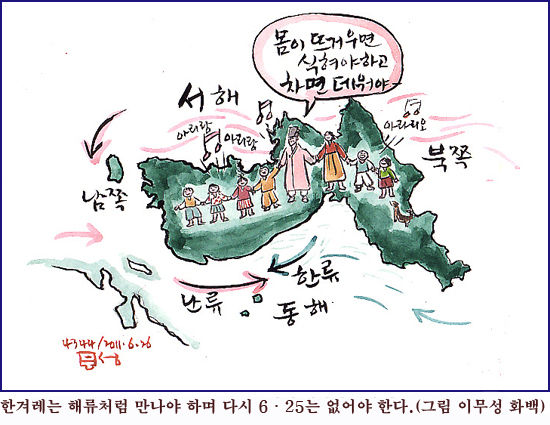 몸이 뜨거우면
식혀야하고
차면 데워야-
서해
아리랑
덩
아리랑
덩
덩
아라리오
북쪽
남쪽
한류
난류
동해
4344/2011.6.26
한겨레는 해류처럼 만나야 하며 다시 6·25는 없어야 한다.(그림 이무성 화백)